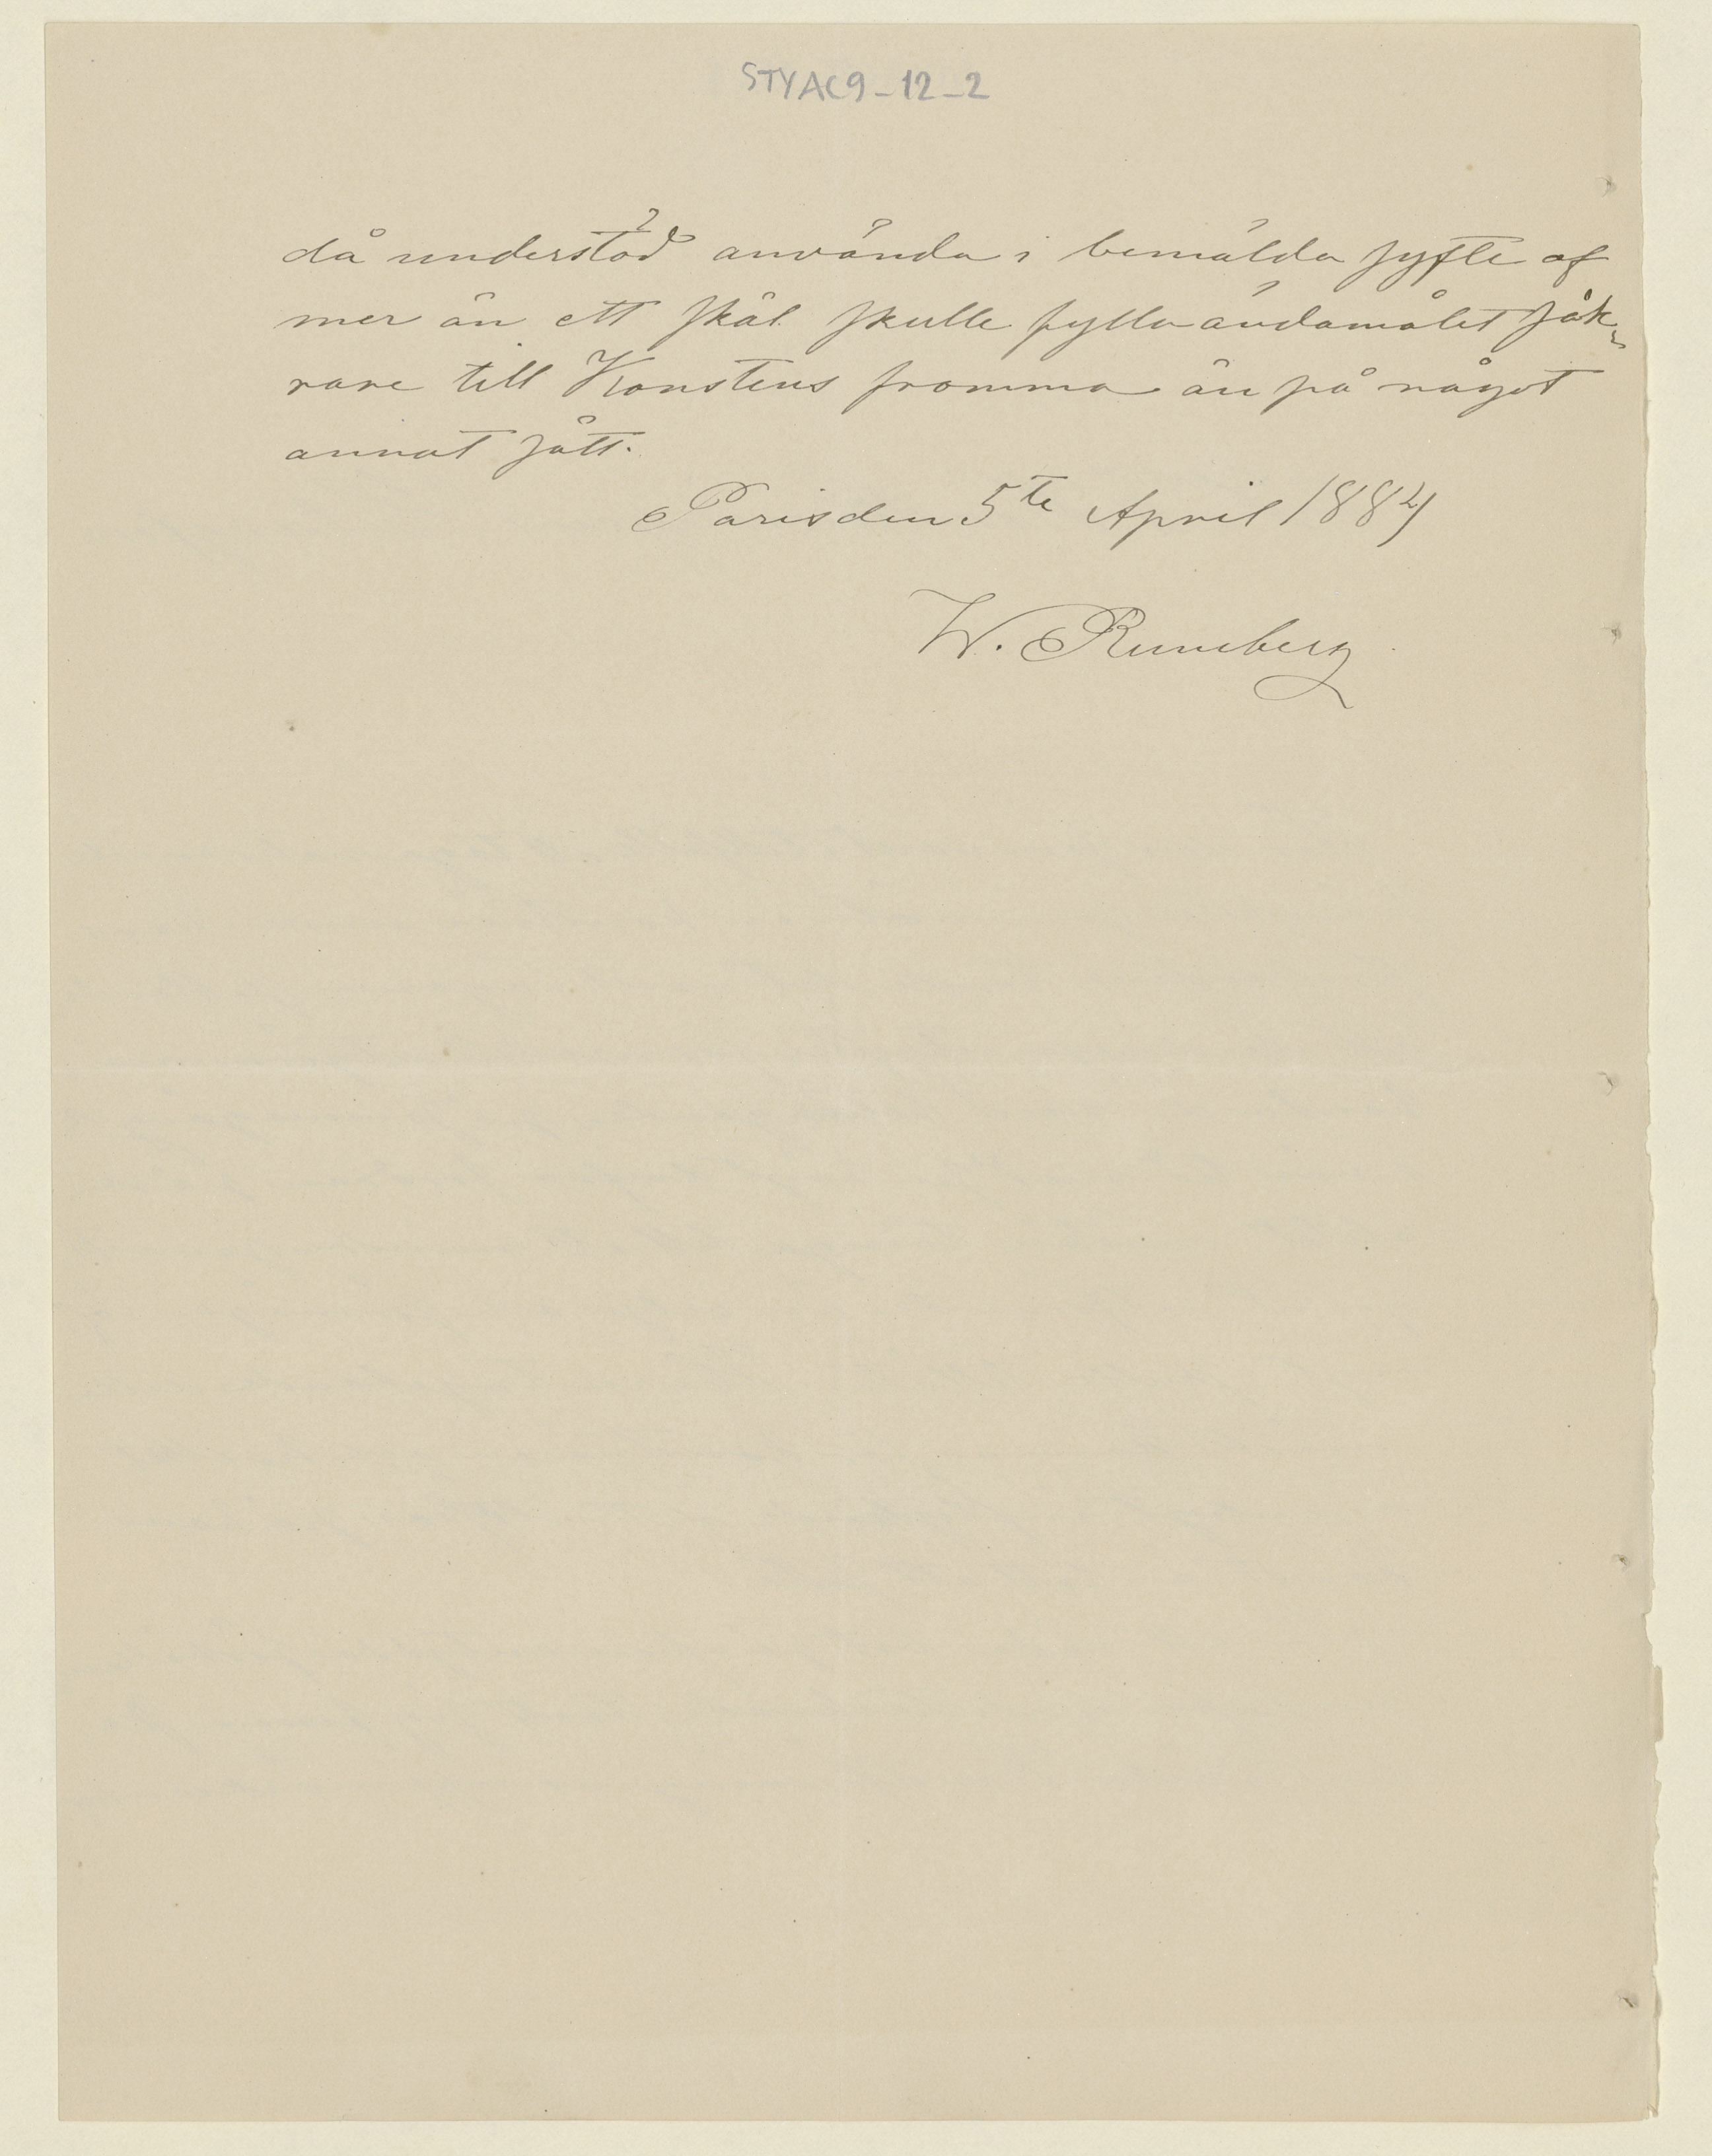 STYAC9_12_2
då understöd använda i bemälda syfte af
mer än ett skäl skulle fylla ändamålet säk-
rare till Konstens fromma än på något
annat sätt.
Paris den 5te April 1884
W. Runeberg